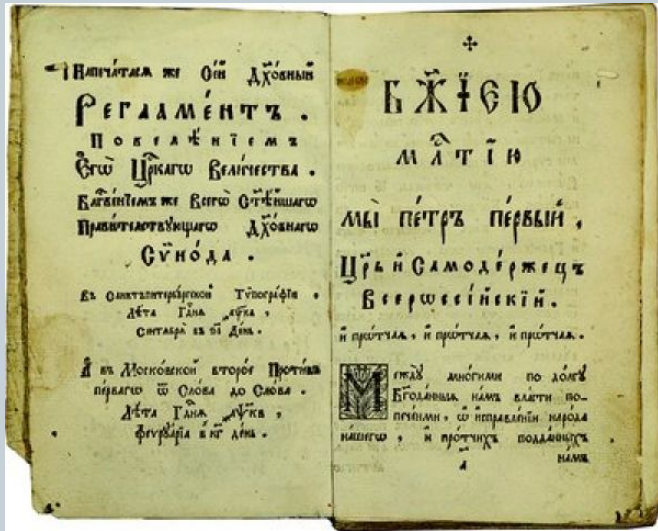 Напеча́тасѧ же Се́й Дх҃о́вный
Регламе́нтъ .
Повелѣ́нїемъ
Єгѡ̀ Цр҃кагѡ Вели́чества .
Блгⷭ҇ве́нїемъ же Всегѡ̀ Ст҃ѣ́йшагѡ
Прави́телствующагѡ Дх҃о́внагѡ
Сѷно́да .
Въ Санктъпитербу́ргской Тѷпогра́фїи .
Лѣ́та Гдⷭ҇нѧ ҂аѱка ,
Сентѧбрѧ̀ въ День .
А҆ въ Моско́вской второ́е Проти́въ
пе́рвагѡ ѿ Сло́ва до Сло́ва .
Лѣ́та Гдⷭ҇нѧ ҂аѱкв ,
февруа́рїа в кг де́нь .
БЖ҃ЇЕЮ
млⷭ҇тїю
мы̀ пе́тръ пе́рвый ,
Цр҃ь и҆ Самоде́ржецъ
Всерѡссі́йскїй .
и҆ прѡ́тчаѧ , и҆ прѡ́тчаѧ , и҆ прѡ́тчаѧ .
Между̀ мно́гими по до́лгу
Бг҃ода́нныѧ на́мъ вла́сти по-
пече́нми , ѡ҆ и҆справле́нїи наро́да
на́шегѡ , и҆ про́тчихъ по́дданныхъ
а҃ на́мъ